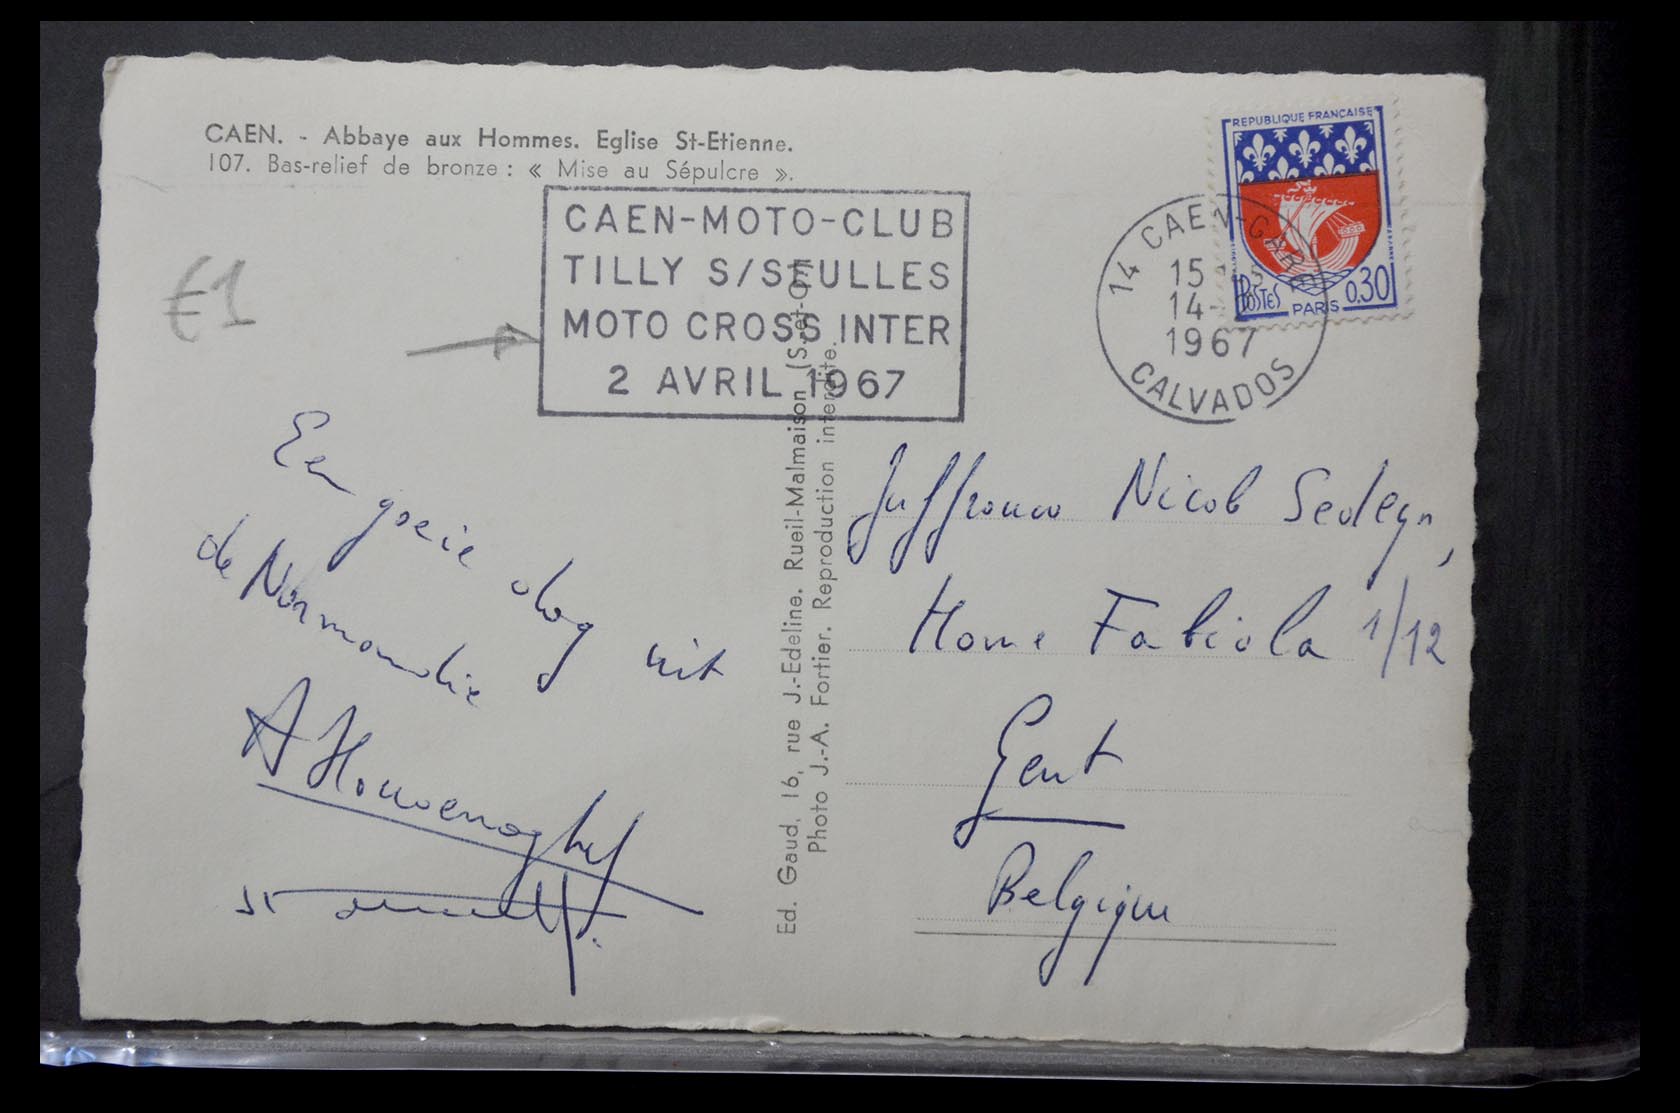 CAEN. - Abbaye aux Hommes. Eglise St-Etienne.
107. Bas-relief de bronze : « Mise au Sépulcre ».
CAEN-MOTO-CLUB
TILLY S/SEULLES
MOTO CROSS INTER
2 AVRIL 1967
14 CAEN-GARE
15
14-
1967
CALVADOS
REPUBLIQUE FRANÇAISE
POSTES
PARIS
0,30
€1
Een goeie dag uit
de Normandie
A
Ed. Gaud, 16, rue J.-Edeline. Rueil-Malmaison (S.-et-O.)
Photo J.-A. Fortier. Reproduction interdite.
Juffrouw Nicole
Home Fabiola 1/12
Gent
Belgique